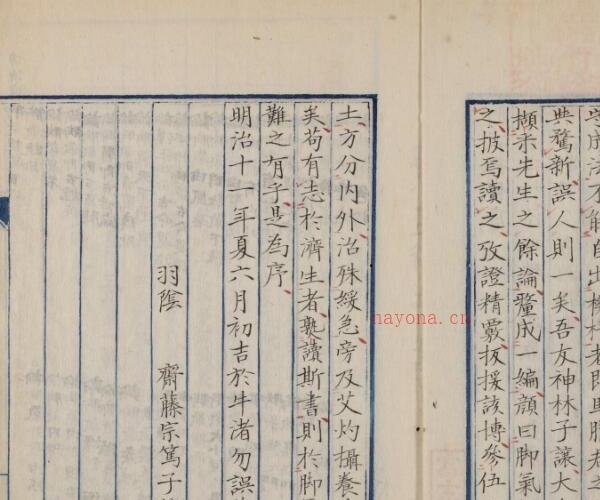 成法不解自出機杼者即
典騖新誤人則一矣吾友神林子讓大
擷采先生之餘論釐成一編顔曰脚氣
之披焉讀之攷證精覈拔援該博參伍
土方分内外治殊緩急旁及艾灼攝養
矣苟有志於濟生者熟讀斯書則於脚
難之有乎是為序
明治十一年夏六月初吉於牛渚勿誤
羽陰 齋藤宗篤子
nayona.cn